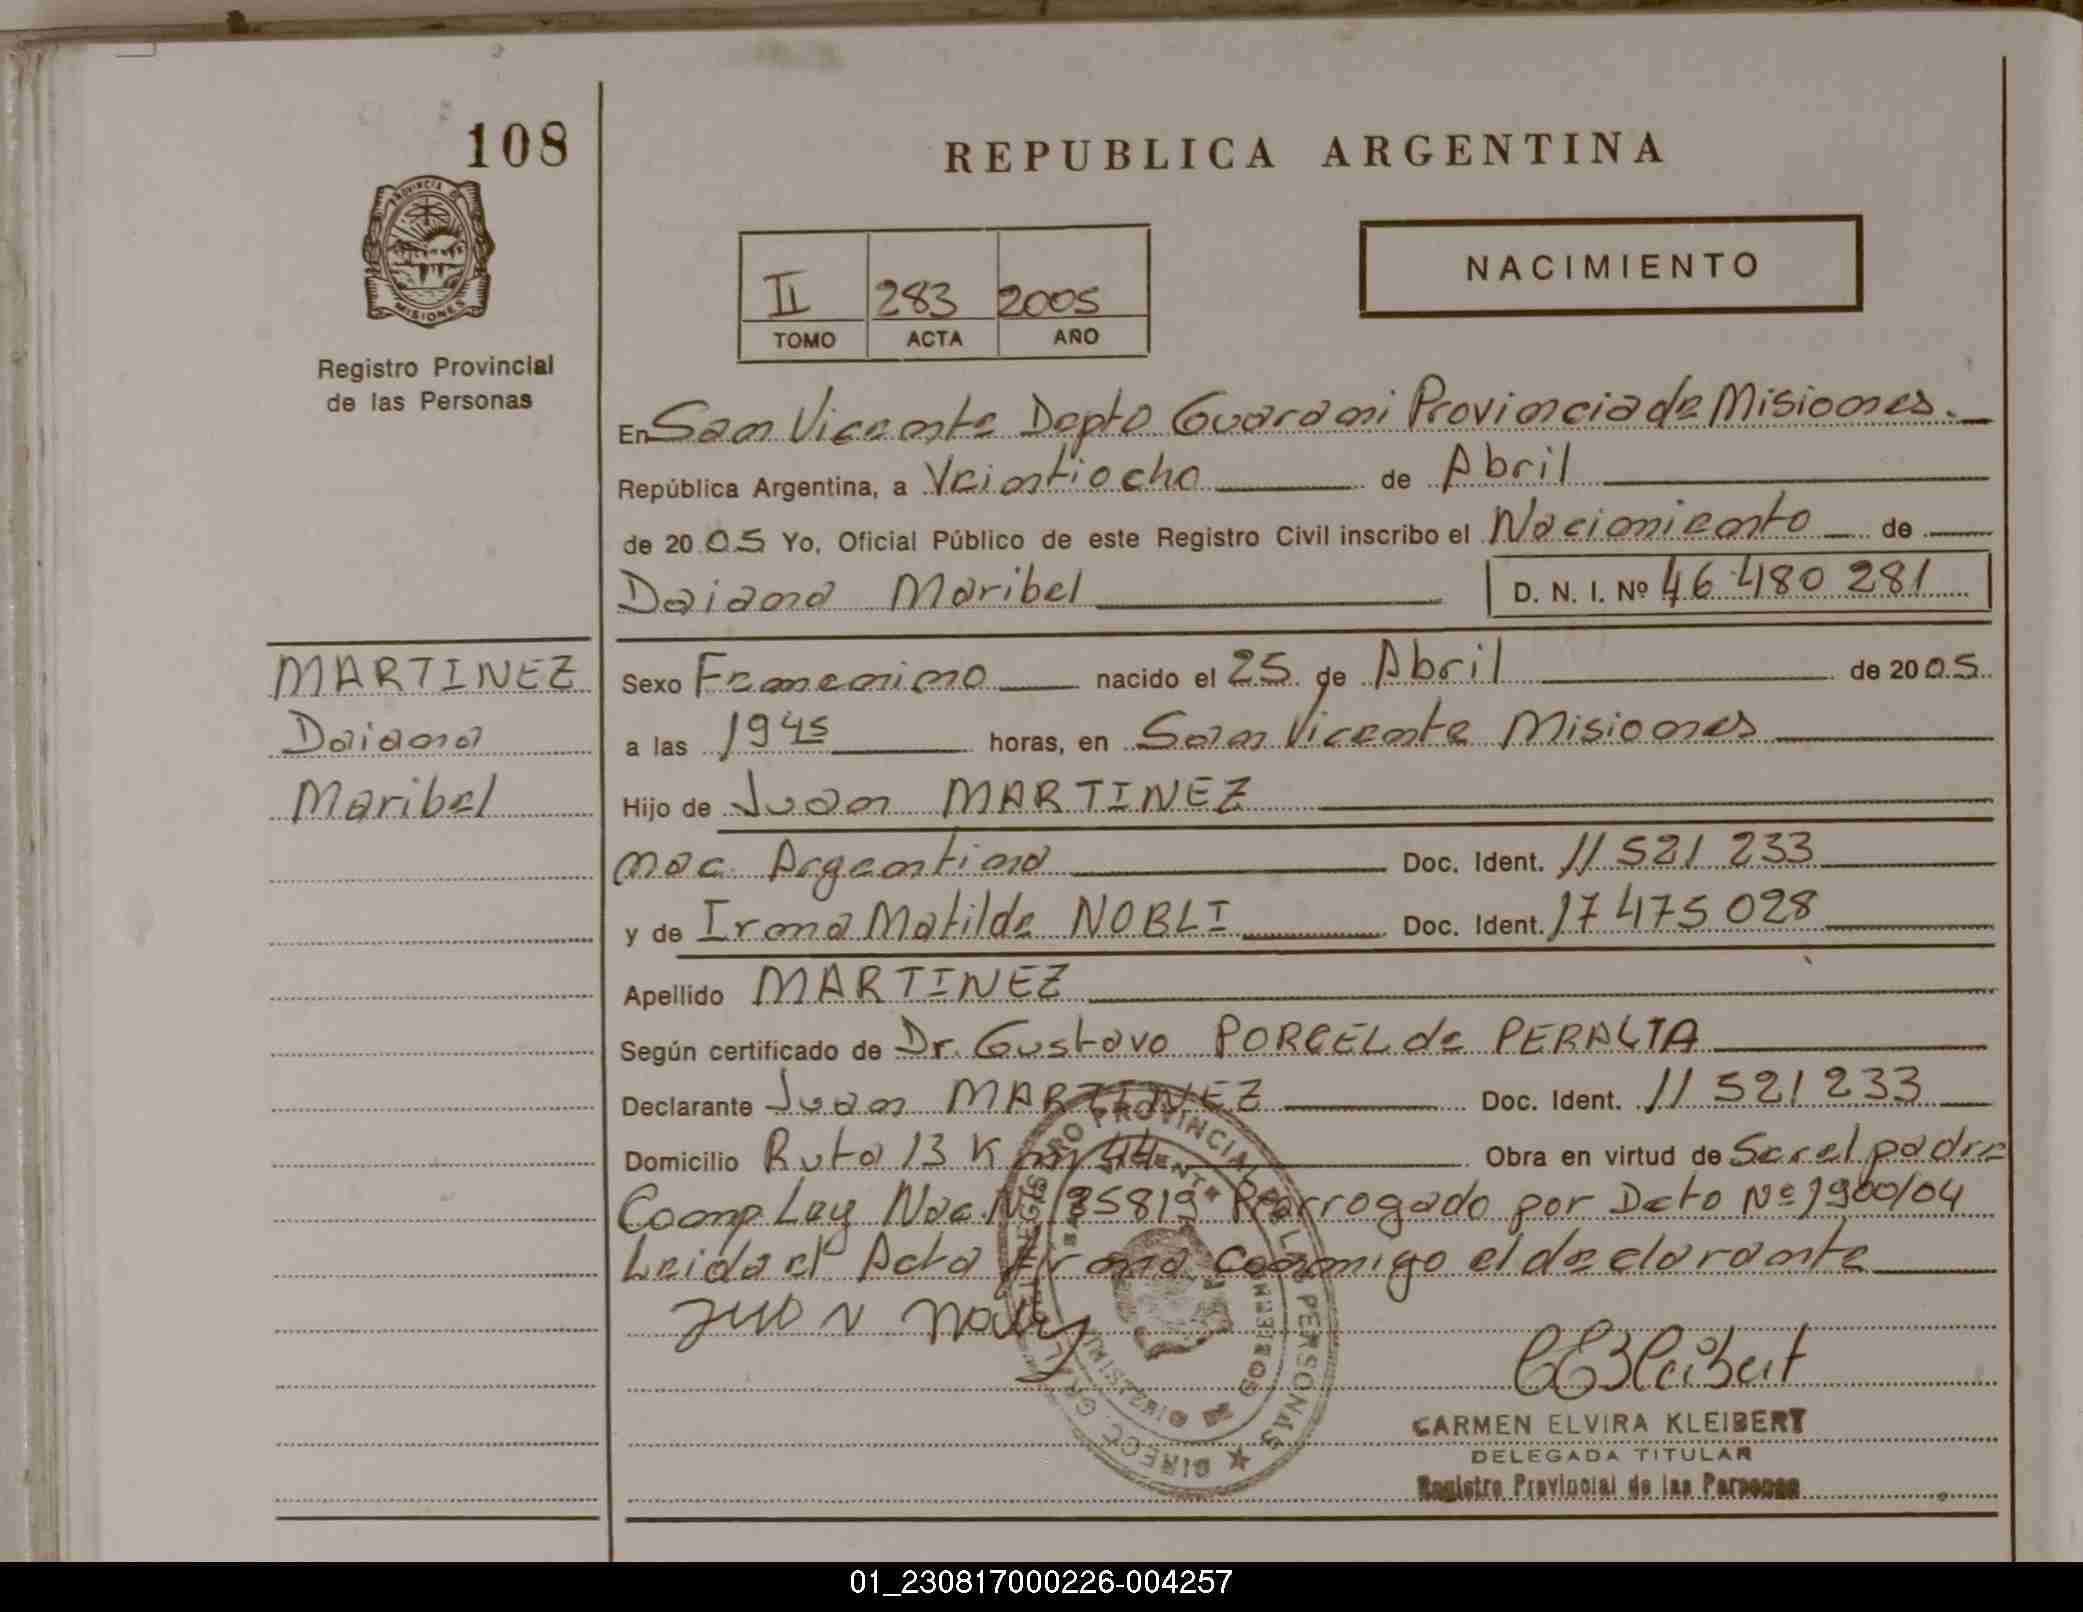 108
REPUBLICA ARGENTINA
PROVINCIA DE
MISIONES
NACIMIENTO
II 283 2005
TOMO ACTA AÑO
Registro Provincial
de las Personas
En San Vicente Depto Guarani Provincia de Misiones.
República Argentina, a Veintiocho de Abril
de 2005 Yo, Oficial Público de este Registro Civil inscribo el Nacimiento de
Daiana Maribel D. N. I. Nº 46 480 281
MARTINEZ
Daiana
Maribel
Sexo Femenino nacido el 25 de Abril de 2005
a las 1945 horas, en San Vicente Misiones
Hijo de Juan MARTINEZ
nac. Argentina Doc. Ident. 11 521 233
y de Irma Matilde NOBLI Doc. Ident. 17 475 028
Apellido MARTINEZ
Según certificado de Dr. Gustavo PORCEL de PERALTA
Declarante Juan MARTINEZ Doc. Ident. 11 521 233
Domicilio Ruta 13 Km 44 Obra en virtud de Ser el padre
Comp Ley Nac. Nº 25819 Prorrogado por Dcto Nº 1900/04
Leida el Acta firma conmigo el declarante
JUAN
CEKleibert
DIRECC. GRAL. REGISTRO PROVINCIAL DE L PERSONAS
CARMEN ELVIRA KLEIBERT
DELEGADA TITULAR
Registro Provincial de las Personas
01_230817000226-004257